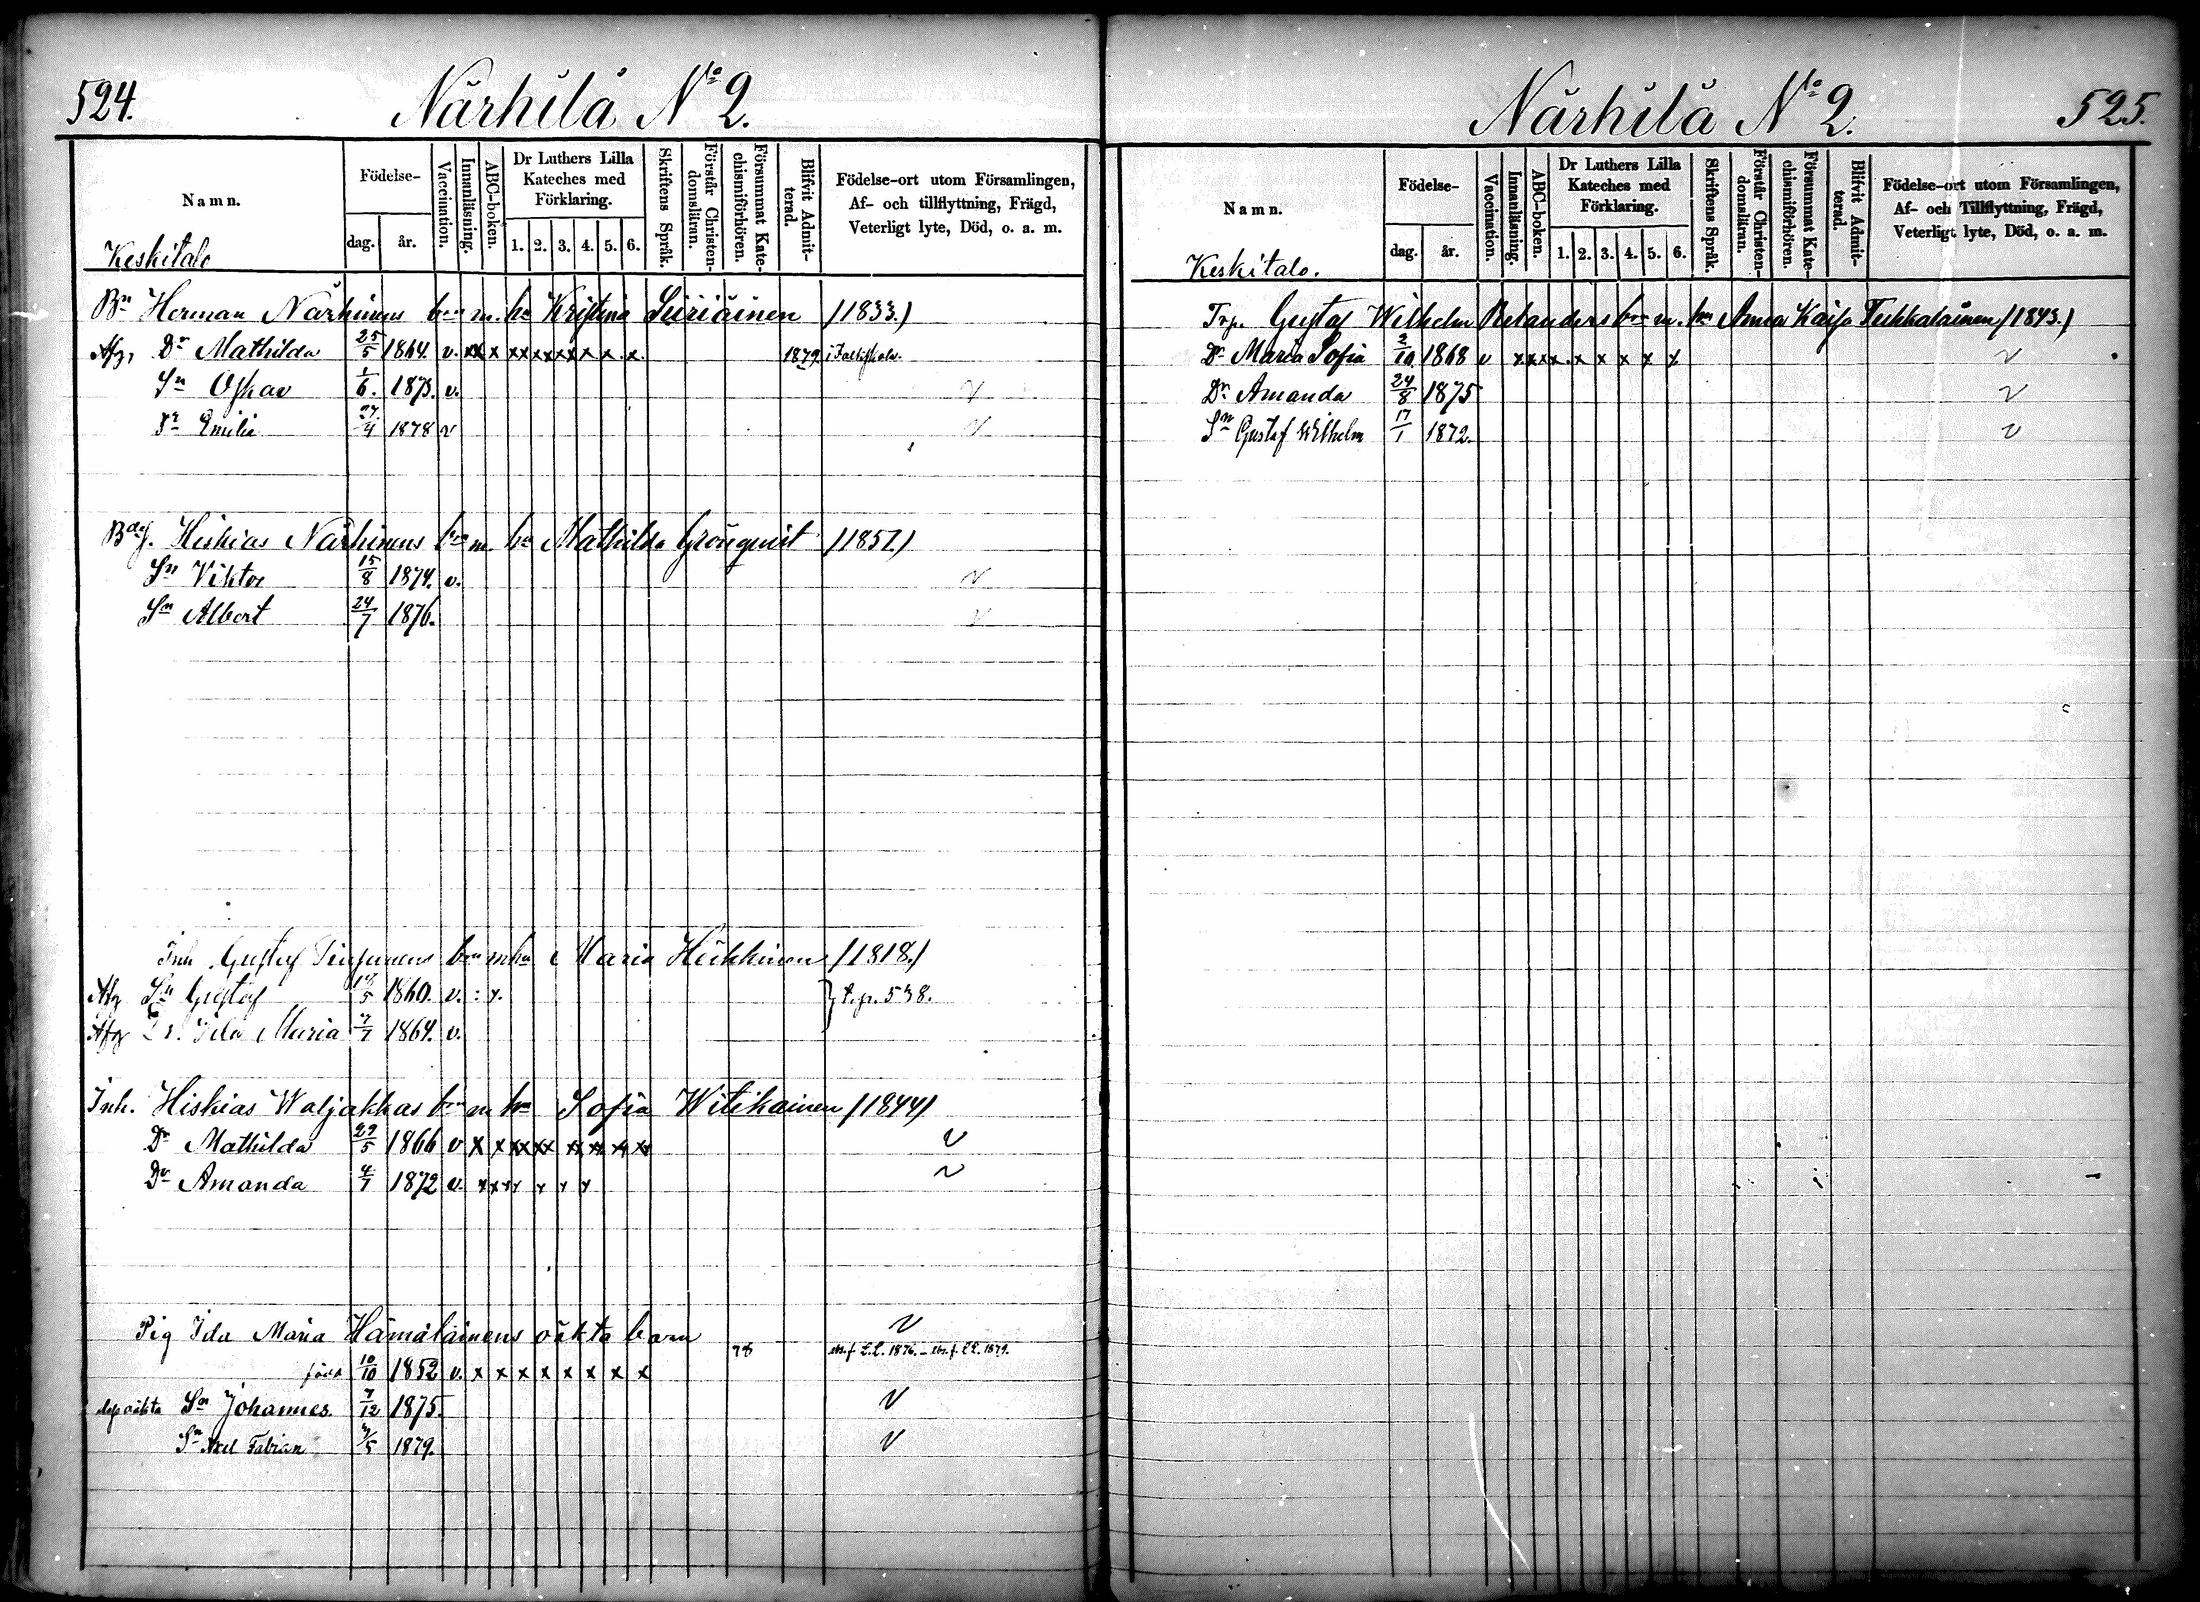 524.
Närhilä No 2.
Namn.
Födelse-
dag. år.
Vaccination.
Innanläsning.
ABC-boken.
Dr Luthers Lilla
Kateches med
Förklaring.
1. 2. 3. 4. 5. 6.
Skriftens Språk.
Förstår Christen-
domsläran.
Försummat Kate-
chismiförhören.
Blifvit Admit-
terad.
Födelse-ort utom Församlingen,
Af- och tillflyttning, Frägd,
Veterligt lyte, Död, o. a. m.
Keskitalo
Bn Herman Närhinens bn m. hu Kristina Siiriäinen /1833./
Afg, Dr Mathilda 25/5 1864. v. xx x xx xx xx x x x 1879
Sn Oskar 1/6. 1873. v. v
Dr Emilia 27/4 1878 v v
Hiskias Närhinens bn m. hu Mathilda Grönqvist /1851./
Sn Viktor 15/8 1874. v. v
Sn Albert 24/7 1876. v
Inh Gustaf bn m hu Maria Heikkinen /1818./
Afg Sn Gustaf 1860. v. : x. } t. p. 538.
Afg Dr. Ida Maria 7/7 1864. v.
Inh. Hiskias Waljakkas bn m hu Sofia Witikainen /1844/
Dr Mathilda 29/5 1866 v x x xx xx xx xx xx xx v
Dr Amanda 4/7 1872 v. x x x x x x x v
Pig Ida Maria Hämäläinens oäkta barn v
78 1876. – 1879.
född 10/10 1852 v. x x x x x x x x
oäkta Sn Johannes. 7/12 1875. v
Sn Axel Fabian 7/5 1879. v
Närhilä No 2.
525.
Namn.
Födelse-
dag. år.
Vaccination.
Innanläsning.
ABC-boken.
Dr Luthers Lilla
Kateches med
Förklaring.
1. 2. 3. 4. 5. 6.
Skriftens Språk.
Förstår Christen-
domsläran.
Försummat Kate-
chismiförhören.
Blifvit Admit-
terad.
Födelse-ort utom Församlingen,
Af- och Tillflyttning, Frägd,
Veterligt lyte, Död, o. a. m.
Keskitalo.
Trp. Gustaf Wilhelm Relanders bn m. hu Anna Kaisa Tiekkalainen /1843./
Dr Maria Sofia 2/10 1868 v x x x x. x x x x x v
Dr Amanda 24/8 1875 v
Sn Gustaf Wilhelm 17/1 1872. v